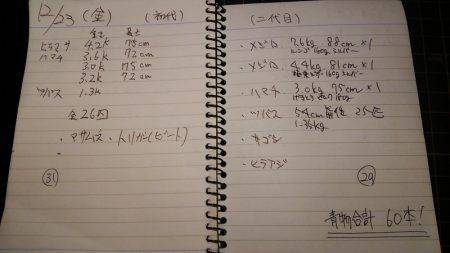 12/23(金) (初代)
重さ 長さ
ヒラマサ 4.2k 75cm
ハマチ 3.6k 72cm
3.0k 75cm
3.2k 72cm
ツバス 1.3k
全26匹
・マサムネ・トリガー(ビート)
・
31
(二代目)
・メジロ 7.6kg 88cm×1
160g シルバー
・メジロ 4.4kg 81cm×1
160g シルバー
・ハマチ 3.0kg 75cm×1
160g
・ツバス 54cm 25匹
1.35kg
・サゴシ
・ヒラアジ
29
青物合計 60本!